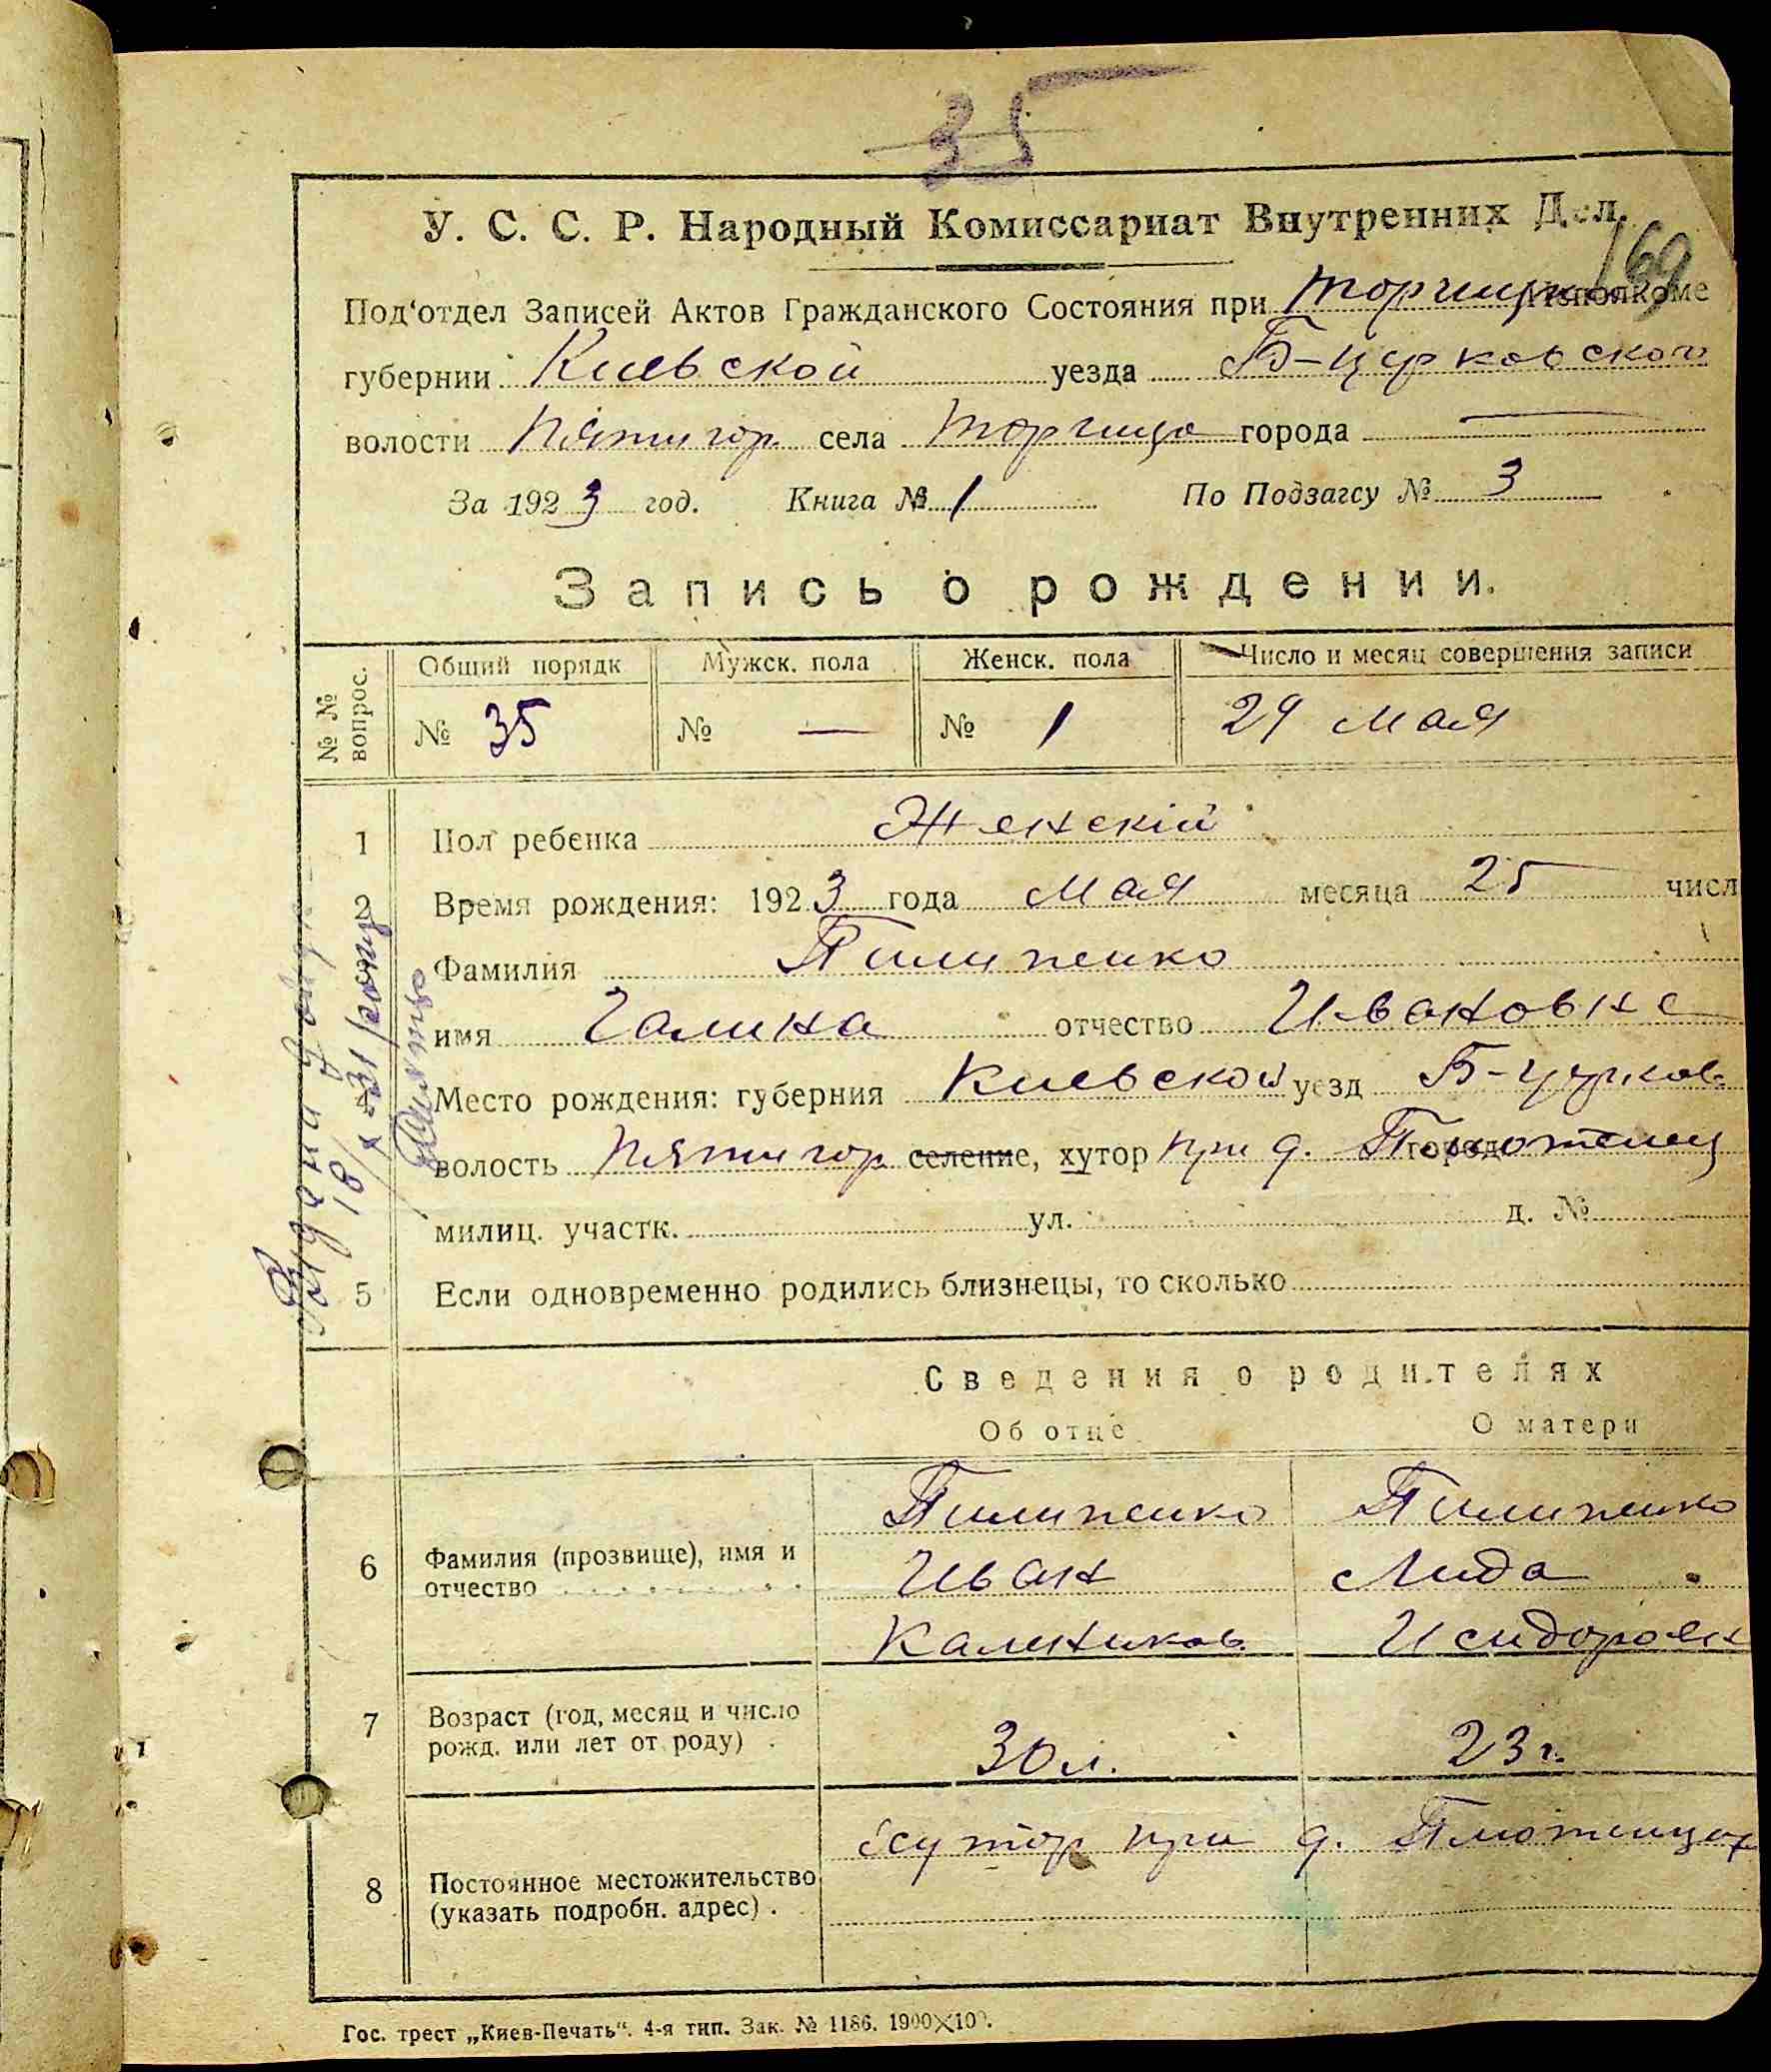 35
169
У. С. С. Р. Народный Комиссариат Внутренних Дел.
Под'отдел Записей Актов Гражданского Состояния при Торчицком Исполкоме
губернии Киевской уезда Б-Церковского
волости Пятигор села Торчица города —
За 1923 год. Книга № 1 По Подзагсу № 3
Запись о рождении.
№№ вопрос. Общий порядк Мужск. пола Женск. пола Число и месяц совершения записи
№ 35 № — № 1 29 мая
1 Пол ребенка Женскій
2 Время рождения: 1923 года мая месяца 25 числ
Фамилия Пилипенко
имя Галина отчество Ивановна
Место рождения: губерния Киевской уезд Б-Церков.
волость Пятигор селение, хутор при д. город
милиц. участк. ул. д. №
5 Если одновременно родились близнецы, то сколько
Сведения о родителях
Об отце О матери
Пилипенко Пилипенко
6 Фамилия (прозвище), имя и Иван Лида
отчество
Калеников. Исидоровн
7 Возраст (год, месяц и число
рожд. или лет от роду) 30 л. 23 г.
хутор при д. Плютницах
8 Постоянное местожительство
(указать подробн. адрес)
Гос. трест „Киев-Печать". 4-я тип. Зак. № 1186. 1900×10